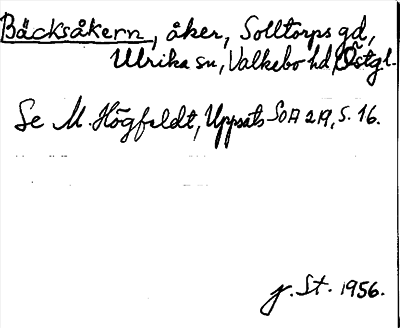 Bäcksåkern, åker, Solltorps gd,
Ulrika sn, Valkebo hd, Östgl.
Se M. Högfeldt, Uppsats SOA 2A, s. 16.
J. St. 1956.